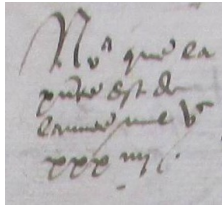 Nᵒᵗᵃ que la
pñte est de
lannee mil vᶜ
xxx iiij